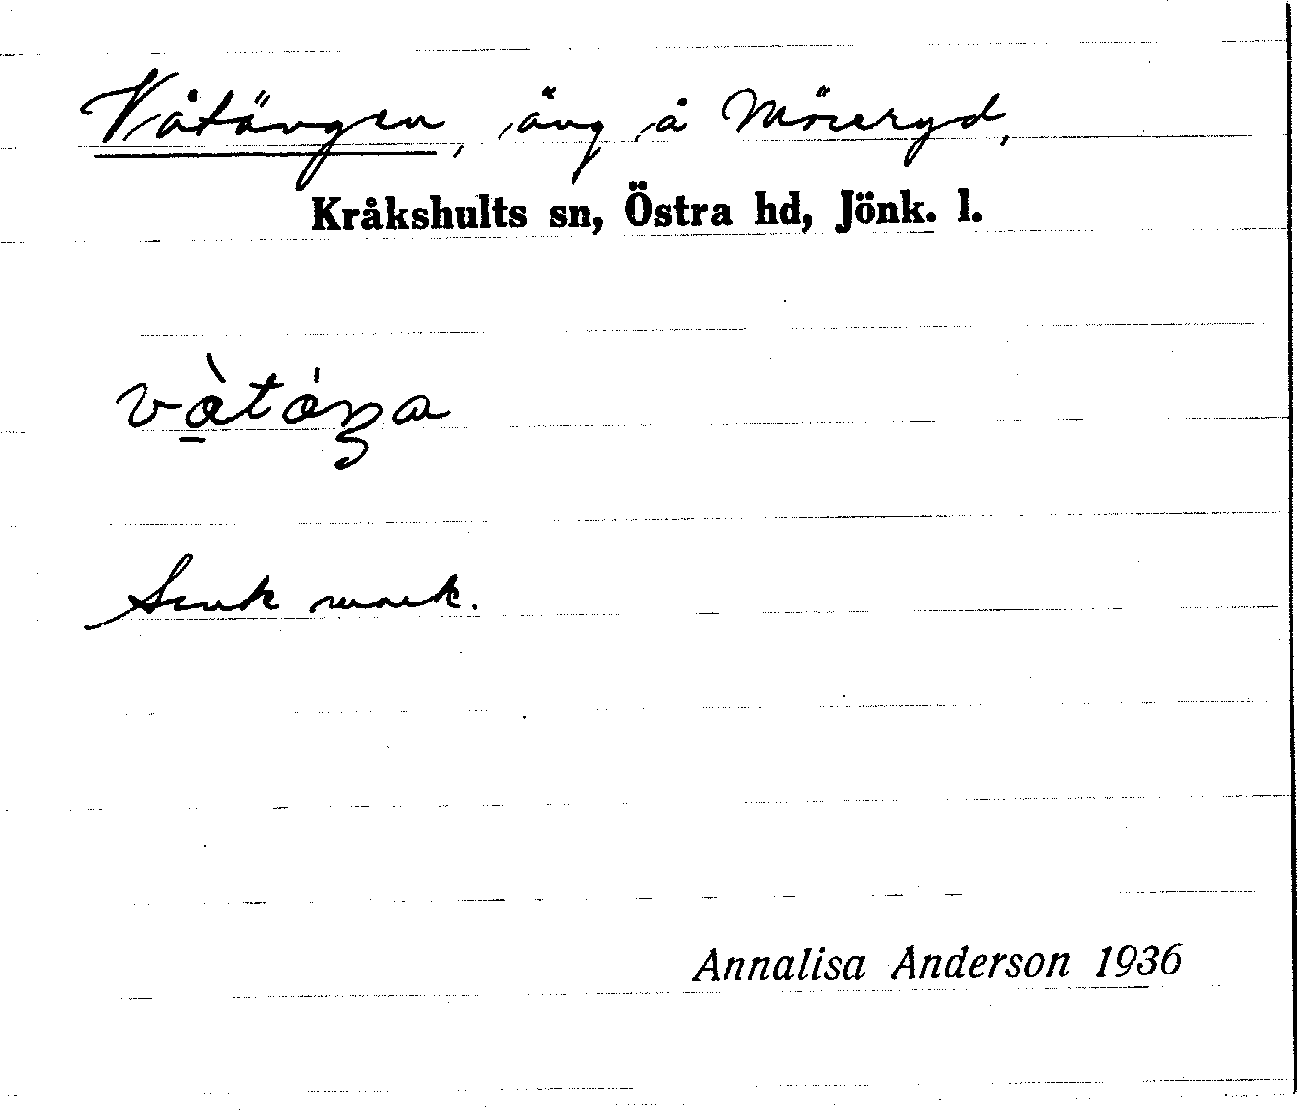 Våtängen, äng å Möreryd,
Kråkshults sn, Östra hd, Jönk. l.
Sank mark.
Annalisa Anderson 1936